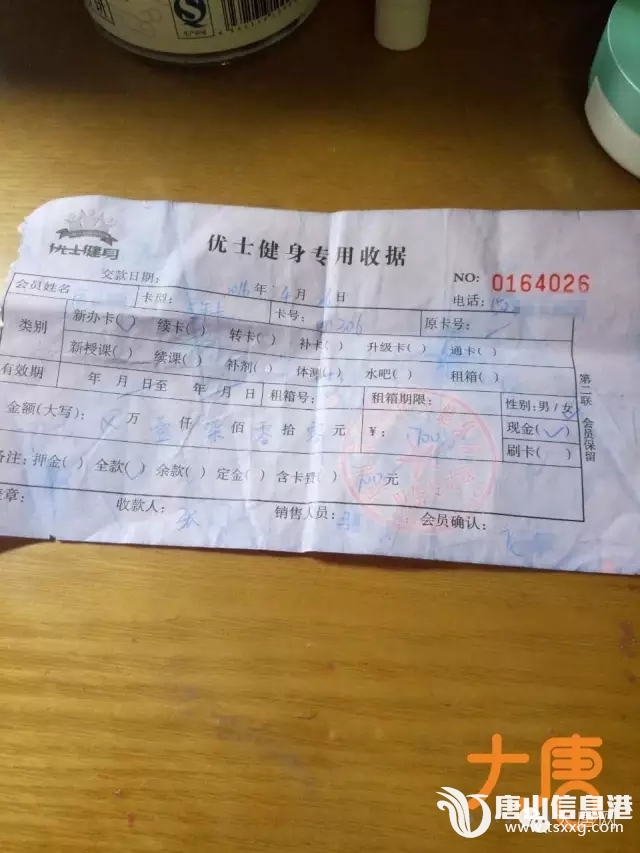 优士健身
优士健身专用收据
NO: 0164026
交款日期: 2016 年 4 月 日
会员姓名 卡型: 年卡 卡号: 206 原卡号: 电话:
类别 新办卡( ) 续卡( ) 转卡( ) 补卡( ) 升级卡( ) 通卡( )
新授课( ) 续课( ) 补剂( ) 体测( ) 水吧( ) 租箱( )
有效期 年 月 日至 年 月 日 租箱号: 租箱期限: 性别:男/女
金额(大写): 万 壹 仟 柒 佰 零 拾 零 元 ¥: 1700 现金(✓)
刷卡( )
备注: 押金( ) 全款( ) 余款( ) 定金( ) 含卡费( ) 元
签章: 收款人: 张 销售人员: 会员确认:
第二联 会员保留
大唐
唐山信息港
www.tsxxg.com